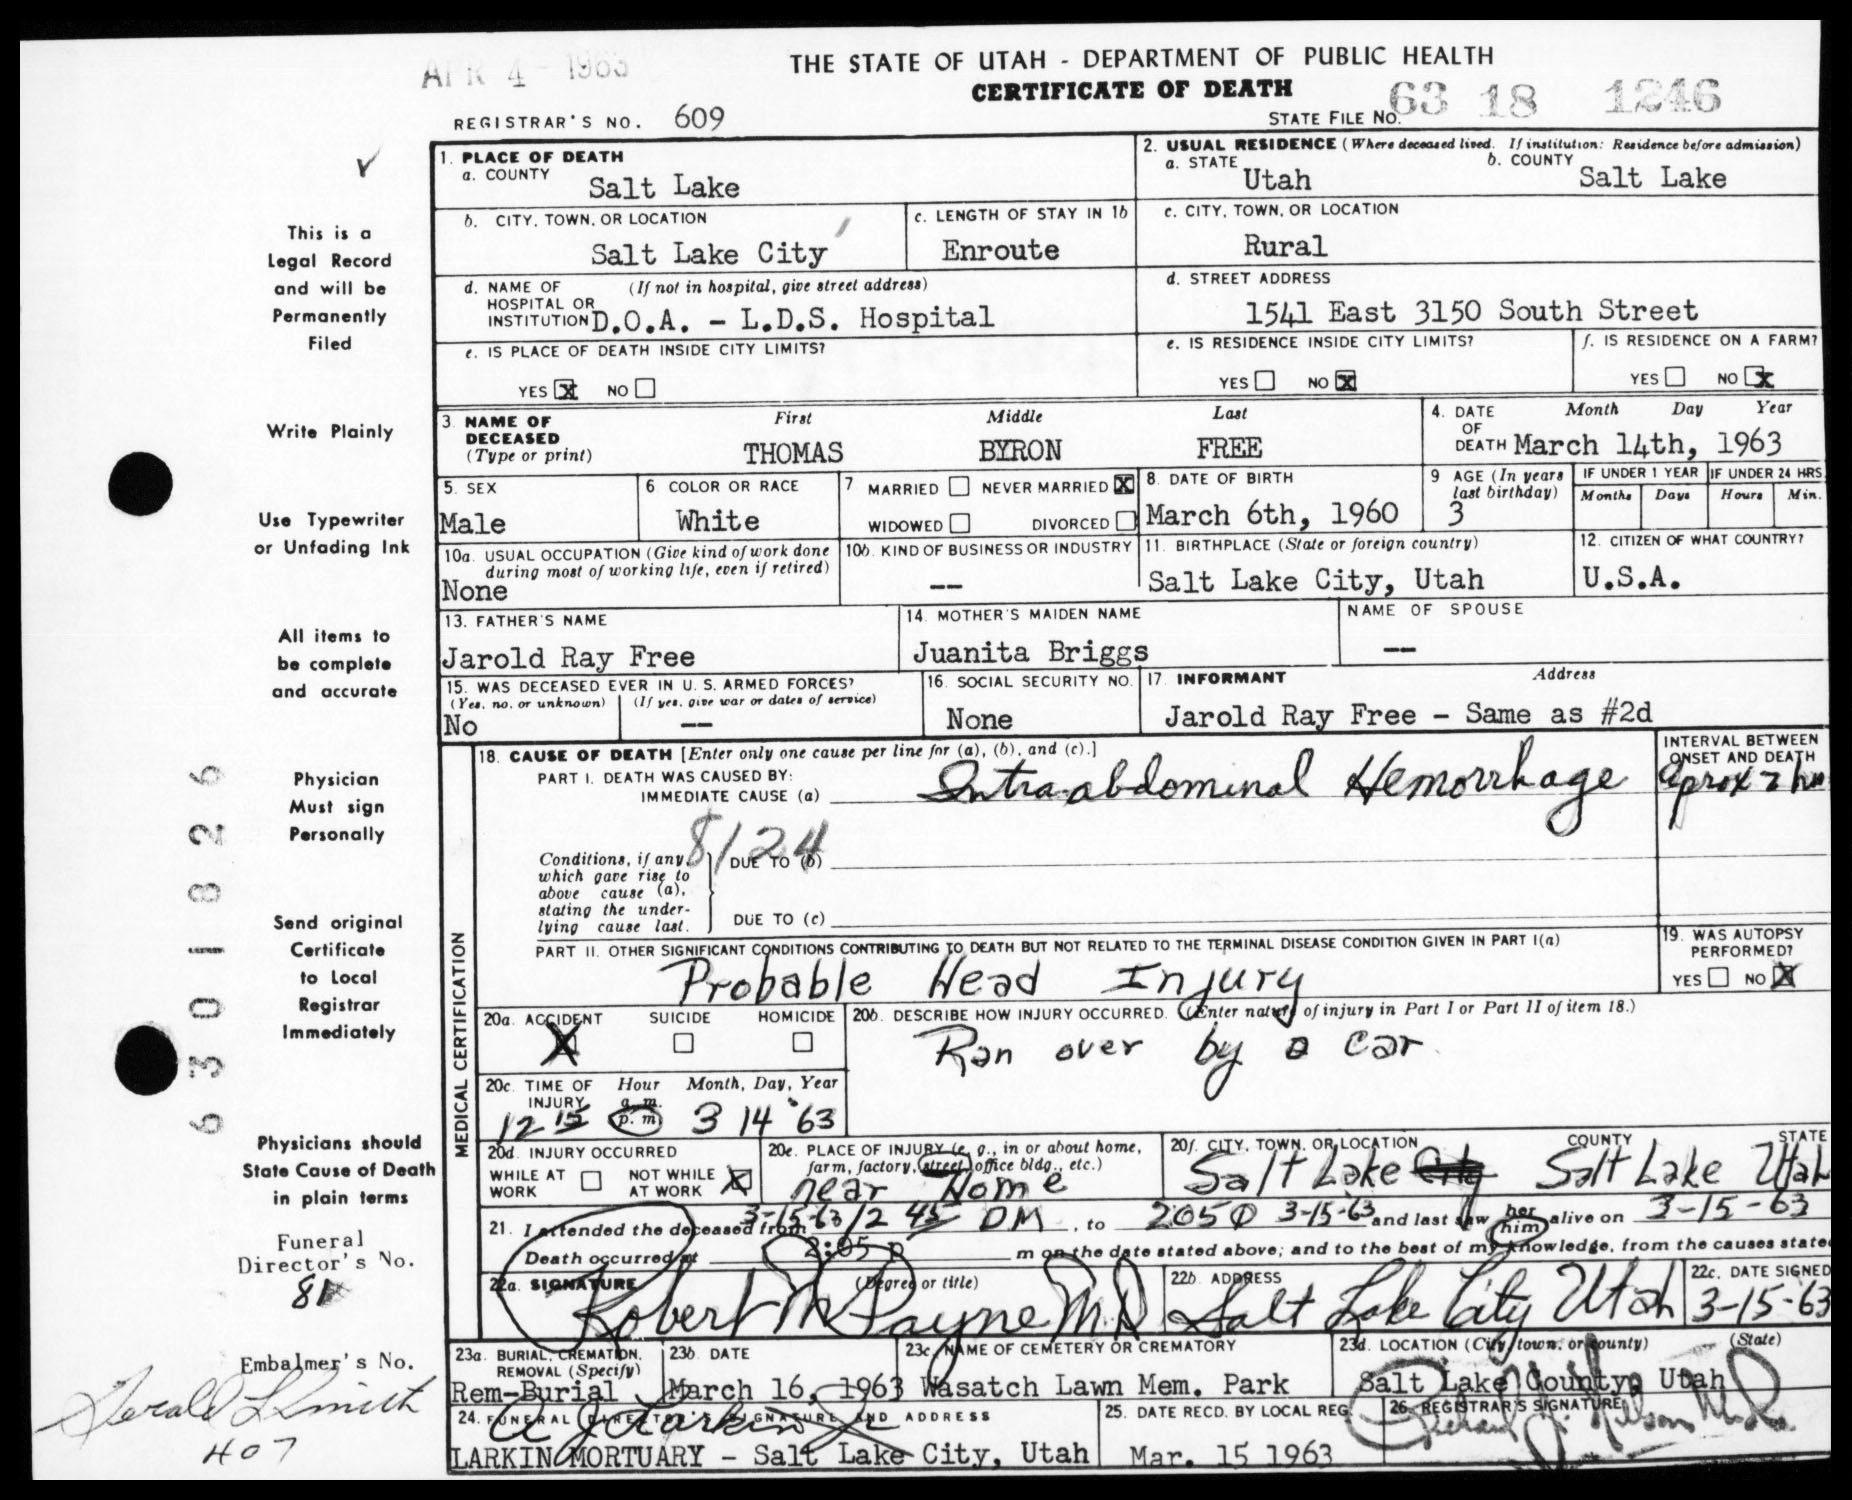 APR 4 - 1963
THE STATE OF UTAH - DEPARTMENT OF PUBLIC HEALTH
CERTIFICATE OF DEATH
REGISTRAR'S NO. 609
STATE FILE NO. 63 18 1246
1. PLACE OF DEATH
a. COUNTY Salt Lake
2. USUAL RESIDENCE (Where deceased lived. If institution: Residence before admission)
a. STATE Utah b. COUNTY Salt Lake
b. CITY, TOWN, OR LOCATION Salt Lake City
c. LENGTH OF STAY IN 1b Enroute
c. CITY, TOWN, OR LOCATION Rural
d. NAME OF HOSPITAL OR INSTITUTION (If not in hospital, give street address)
D.O.A. - L.D.S. Hospital
d. STREET ADDRESS
1541 East 3150 South Street
e. IS PLACE OF DEATH INSIDE CITY LIMITS?
YES X NO
e. IS RESIDENCE INSIDE CITY LIMITS?
YES NO X
f. IS RESIDENCE ON A FARM?
YES NO X
3. NAME OF DECEASED (Type or print)
First Middle Last
THOMAS BYRON FREE
4. DATE OF DEATH Month Day Year
March 14th, 1963
5. SEX
Male
6 COLOR OR RACE
White
7 MARRIED NEVER MARRIED X
WIDOWED DIVORCED
8. DATE OF BIRTH
March 6th, 1960
9 AGE (In years last birthday)
3
IF UNDER 1 YEAR
Months Days
IF UNDER 24 HRS.
Hours Min.
10a. USUAL OCCUPATION (Give kind of work done during most of working life, even if retired)
None
10b. KIND OF BUSINESS OR INDUSTRY
--
11. BIRTHPLACE (State or foreign country)
Salt Lake City, Utah
12. CITIZEN OF WHAT COUNTRY?
U.S.A.
13. FATHER'S NAME
Jarold Ray Free
14. MOTHER'S MAIDEN NAME
Juanita Briggs
NAME OF SPOUSE
--
15. WAS DECEASED EVER IN U.S. ARMED FORCES?
(Yes, no, or unknown) (If yes, give war or dates of service)
No --
16. SOCIAL SECURITY NO.
None
17 INFORMANT Address
Jarold Ray Free - Same as #2d
MEDICAL CERTIFICATION
18. CAUSE OF DEATH [Enter only one cause per line for (a), (b), and (c).]
PART I. DEATH WAS CAUSED BY:
IMMEDIATE CAUSE (a) Intraabdominal Hemorrhage
INTERVAL BETWEEN ONSET AND DEATH
aprox 2 hrs
8124
Conditions, if any, which gave rise to above cause (a), stating the underlying cause last.
DUE TO (b)
DUE TO (c)
PART II. OTHER SIGNIFICANT CONDITIONS CONTRIBUTING TO DEATH BUT NOT RELATED TO THE TERMINAL DISEASE CONDITION GIVEN IN PART I(a)
Probable Head Injury
19. WAS AUTOPSY PERFORMED?
YES NO X
20a. ACCIDENT SUICIDE HOMICIDE
X
20b. DESCRIBE HOW INJURY OCCURRED. (Enter nature of injury in Part I or Part II of item 18.)
Ran over by a car
20c. TIME OF INJURY Hour Month, Day, Year
a.m.
12 15 p.m 3 14 '63
20d. INJURY OCCURRED
WHILE AT WORK NOT WHILE AT WORK X
20e. PLACE OF INJURY (e. g., in or about home, farm, factory, street, office bldg., etc.)
near Home
20f. CITY, TOWN, OR LOCATION COUNTY STATE
Salt Lake City Salt Lake Utah
21. I attended the deceased from 3-15-63 12 45 PM, to 205 3-15-63 and last saw her him alive on 3-15-63
Death occurred at 2:05 p m on the date stated above; and to the best of my knowledge, from the causes state
22a. SIGNATURE (Degree or title)
Robert M Payne M.D
22b. ADDRESS
Salt Lake City Utah
22c. DATE SIGNED
3-15-63
23a. BURIAL, CREMATION, REMOVAL (Specify)
Rem-Burial
23b. DATE
March 16, 1963
23c. NAME OF CEMETERY OR CREMATORY
Wasatch Lawn Mem. Park
23d. LOCATION (City, town, or county) (State)
Salt Lake County, Utah
24. FUNERAL DIRECTOR'S SIGNATURE AND ADDRESS
A J Larkin Jr
LARKIN MORTUARY - Salt Lake City, Utah
25. DATE RECD. BY LOCAL REG
Mar. 15 1963
26. REGISTRAR'S SIGNATURE
This is a
Legal Record
and will be
Permanently
Filed
Write Plainly
Use Typewriter
or Unfading Ink
All items to
be complete
and accurate
Physician
Must sign
Personally
Send original
Certificate
to Local
Registrar
Immediately
Physicians should
State Cause of Death
in plain terms
Funeral
Director's No.
81
Embalmer's No.
Gerald L Smith
407
6301826